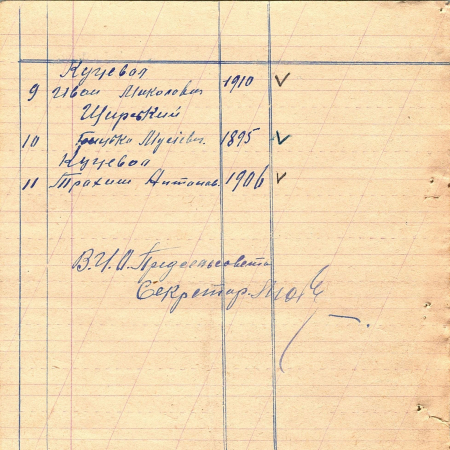 Куцевол
9 Иван Миколович 1910 ✓
Щирский
10 Грицько Мусієвич. 1895 ✓
Куцевол
11 Трахим Антонов. 1906 ✓
В.И.О. Предсельсовета
Секретар.